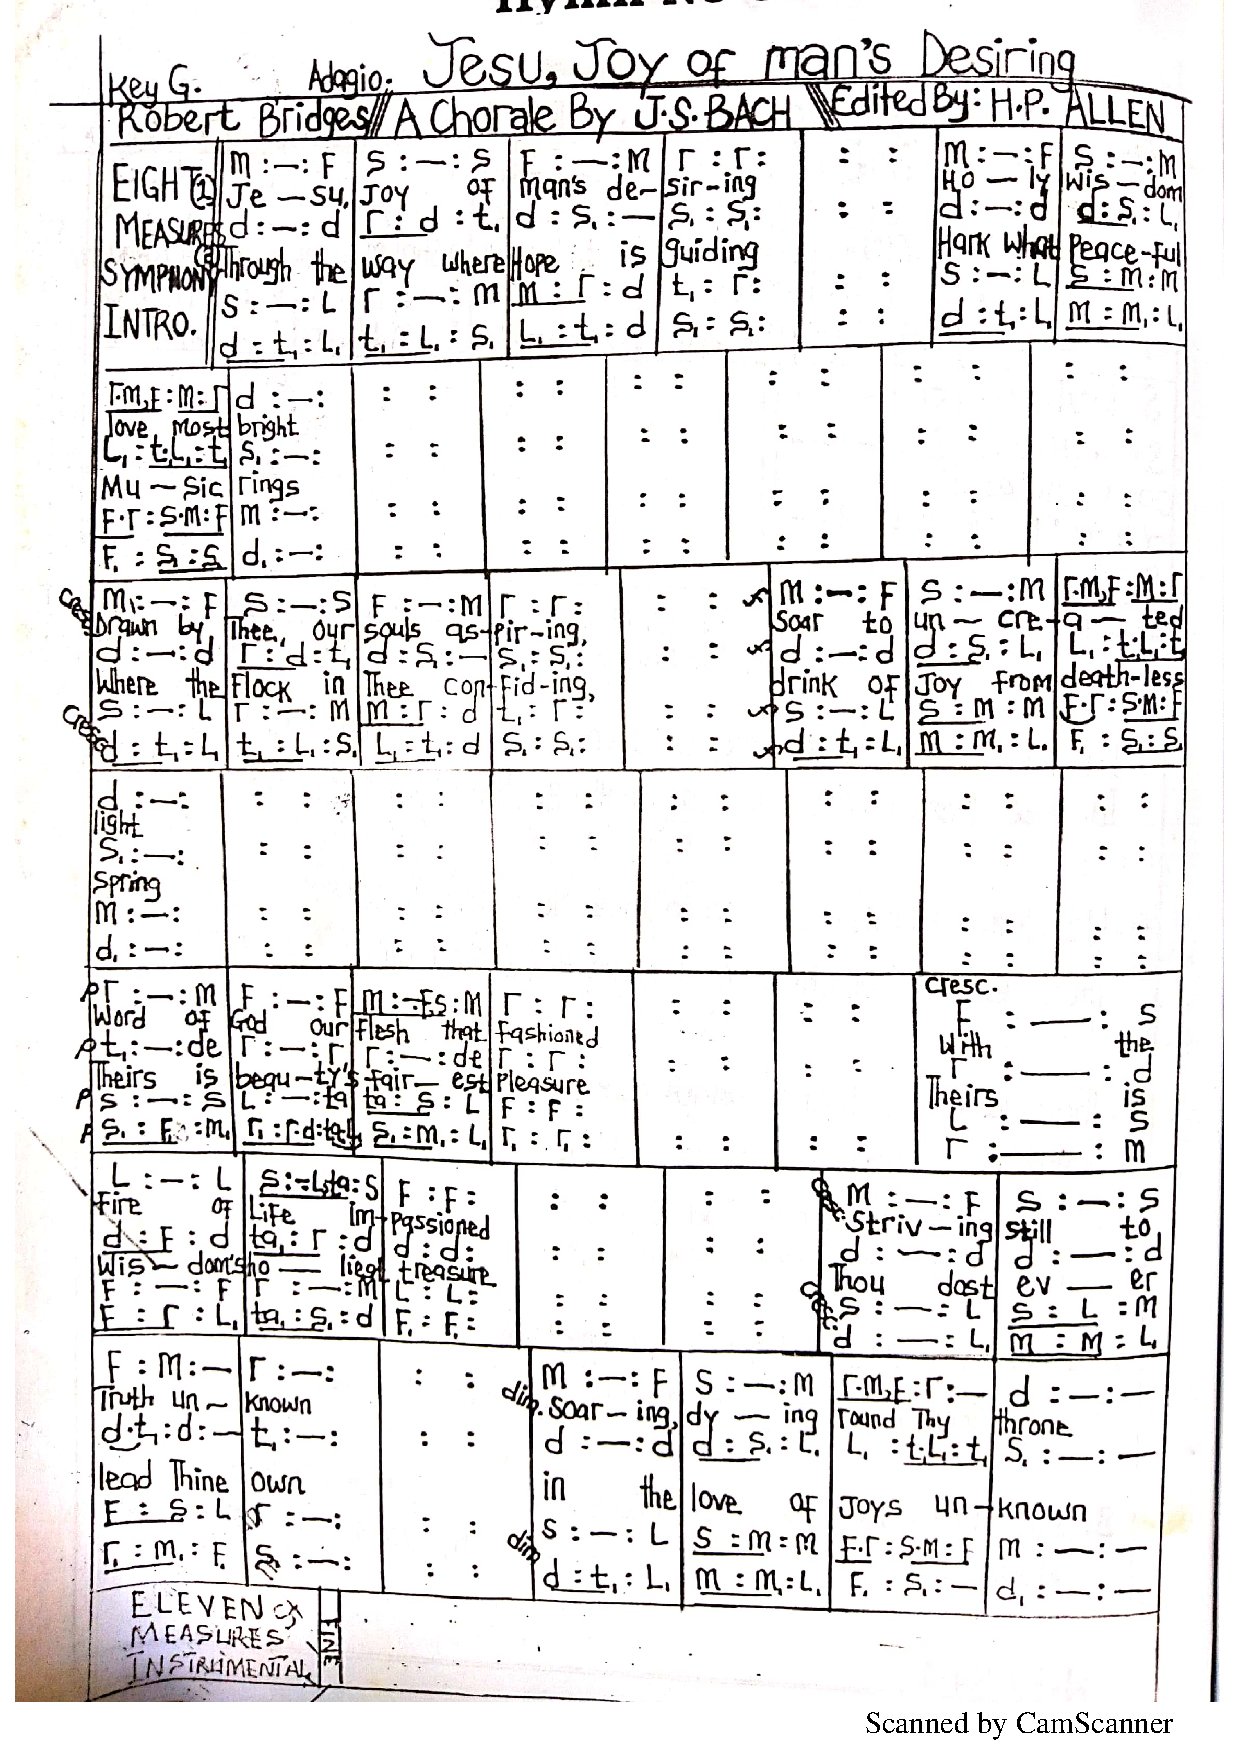 Key G. Adagio: Jesu, Joy of man's Desiring
Robert Bridges // A Chorale By J.S. BACH \\ Edited By: H.P. ALLEN
EIGHT (1) MEASURES (2) SYMPHONY INTRO.
m :—: F | S :—: S | F :—: M | r : r : | : : | m :—: F | S :—: M
Je — su, Joy of man's de— sir-ing Ho — ly Wis — dom
d :—: d | r : d : t, | d : S, :— | S, : S, : | : : | d :—: d | d : S, : L,
Through the way where Hope is guiding Hark what Peace-ful
S :—: L | r :—: m | m : r : d | t, : r : | : : | S :—: L | S : m : M
d : t, : L, | t, : L, : S, | L, : t, : d | S, : S, : | : : | d : t, : L, | M : M, : L,
r.m,F : M : r | d :—: | : : | : : | : : | : : | : : | : :
love most bright
L, : t,.L, : t, | S, :—: | : : | : : | : : | : : | : : | : :
Mu — sic rings
F.r : S.M : F | m :—: | : : | : : | : : | : : | : : | : :
F, : S, : S, | d, :—: | : : | : : | : : | : : | : : | : :
cresc m :—: F | S :—: S | F :—: M | r : r : | : : | M :—: F | S :—: M | r.m,F : M : r
Drawn by, Thee, our souls as-pir-ing, Soar to un — cre-a — ted
d :—: d | r : d : t, | d : S, :— | S, : S, : | : : | d :—: d | d : S, : L, | L, : t,.L, : t,
Where the Flock in Thee con-fid-ing, drink of Joy from death-less
S :—: L | r :—: M | m : r : d | t, : r : | : : | S :—: L | S : m : M | F.r : S.M : F
Cresc d : t, : L, | t, : L, : S, | L, : t, : d | S, : S, : | : : | d : t, : L, | M : M, : L, | F, : S, : S,
d :—: | : : | : : | : : | : : | : : | : : | : :
light
S, :—: | : : | : : | : : | : : | : : | : : | : :
Spring
m :—: | : : | : : | : : | : : | : : | : : | : :
d, :—: | : : | : : | : : | : : | : : | : : | : :
cresc.
p r :—: M | F :—: F | M :-.Fs : M | r : r : | : : | : : | F :—: S
Word of God our flesh that fashioned With the
p t, :—: de | r :—: r | r :—: de | r : r : | : : | : : | r :—: d
Theirs is beau-ty's fair-est Pleasure Theirs is
p S :—: S | L :—: ta | ta : S : L | F : F : | : : | : : | L :—: S
p S, : F, : M, | r, : r,d : ta, | S, : M, : L, | r, : r, : | : : | : : | r :—: m
L :—: L | S :-.Lsta : S | F : F : | : : | : : | cresc m :—: F | S :—: S
Fire of Life im-passioned Striv-ing still to
d : F : d | ta, : r : d | d : d : | : : | : : | d :—: d | d :—: d
Wis — dom's ho — liest treasure Thou dost ev — er
F :—: F | r :—: M | L : L : | : : | : : | cresc S :—: L | S : L : M
F : r : L, | ta, : S, : d | F, : F, : | : : | : : | d :—: L, | M : M : L,
F : M :— | r :—: | : : | dim. M :—: F | S :—: M | r.M,F : r :— | d :—:—
Truth un — known Soar-ing, dy — ing round Thy throne
d.t, : d :— | t, :—: | : : | d :—: d | d : S, : L, | L, : t,.L, : t, | S, :—:—
lead Thine own in the love of Joys un-known
F : S : L | r :—: | : : | S :—: L | S : m : M | F.r : S.M : F | m :—:—
r, : m, : F, | S, :—: | : : | dim d : t, : L, | M : M, : L, | F, : S, :— | d, :—:—
ELEVEN
MEASURES
INSTRUMENTAL
FINE
Scanned by CamScanner